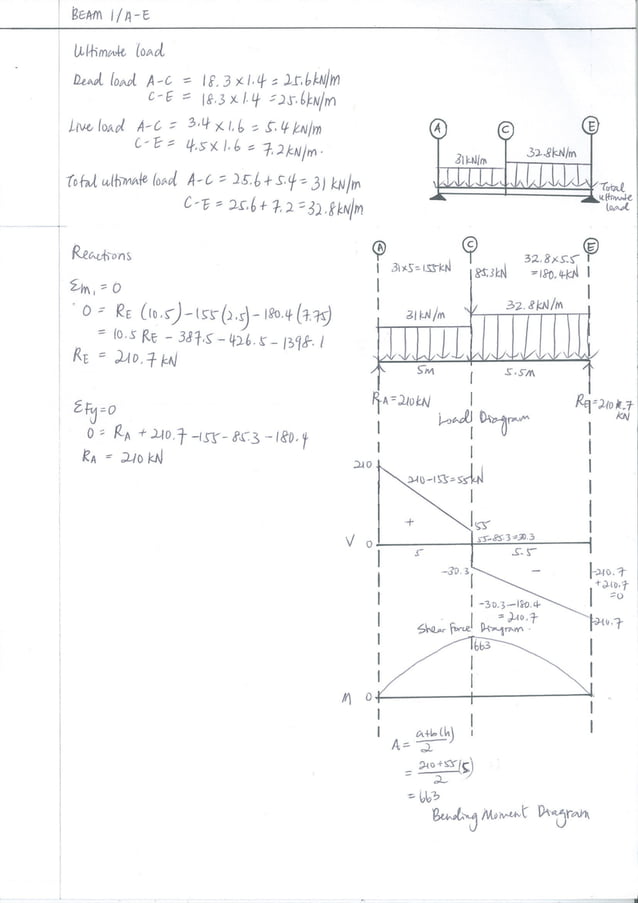 BEAM 1/A-E
Ultimate load
Dead load A-C = 18.3 x 1.4 = 25.6kN/m
C-E = 18.3 x 1.4 = 25.6kN/m
Live load A-C = 3.4 x 1.6 = 5.4kN/m
C-E = 4.5 x 1.6 = 7.2kN/m.
Total ultimate load A-C = 25.6 + 5.4 = 31 kN/m
C-E = 25.6 + 7.2 = 32.8kN/m
A C E
31kN/m 32.8kN/m
Total
ultimate
load
Reactions
Σm, = 0
0 = RE (10.5) - 155 (2.5) - 180.4 (7.75)
= 10.5 RE - 387.5 - 426.5 - 1398.1
RE = 210.7 kN
ΣFy=0
0 = RA + 210.7 - 155 - 85.3 - 180.4
RA = 210 kN
A C E
31x5=155kN
85.3kN
32.8x5.5
=180.4kN
31kN/m 32.8kN/m
5m 5.5m
RA=210kN
kN
Load Diagram
210
210-155=55kN
+
55
55-85.3=30.3
V 0
5 5.5
-30.3
-
-210.7
+210.7
=0
-30.3-180.4
=210.7
-210.7
Shear Force Diagram.
663
M 0
A = a+b(h)
2
= 210+55(5)
2
= 663
Bending Moment Diagram